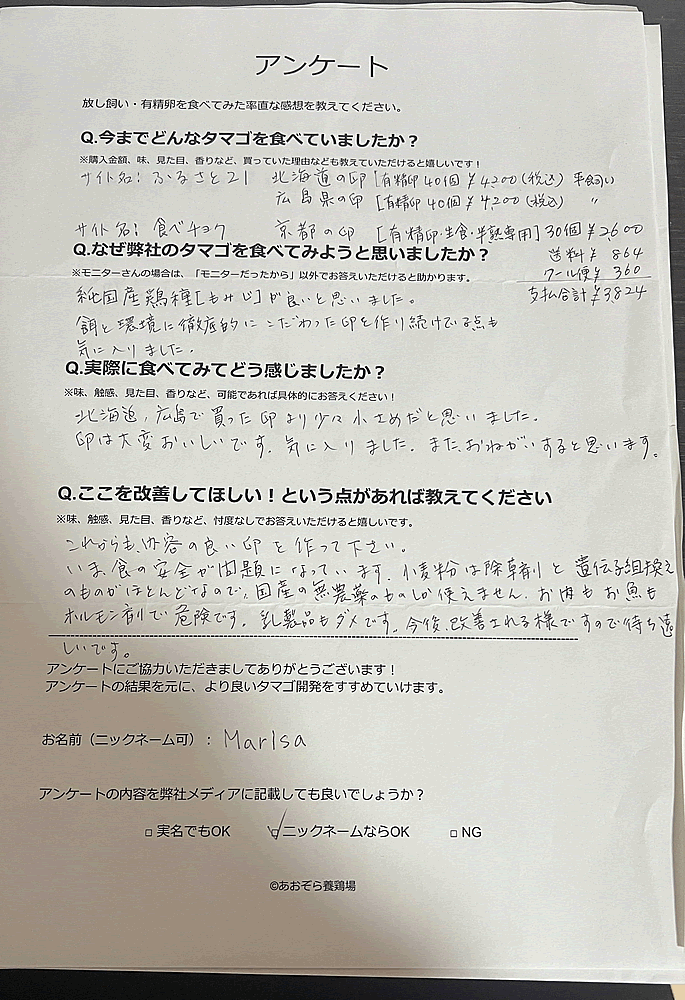 アンケート
放し飼い・有精卵を食べてみた率直な感想を教えてください。
Q.今までどんなタマゴを食べていましたか？
※購入金額、味、見た目、香りなど、買っていた理由なども教えていただけると嬉しいです！
サイト名：ふるさと21 北海道の卵 [有精卵40個 ¥4,200（税込） 平飼い
広島県の卵 [有精卵40個 ¥4200（税込） 〃
サイト名：食べチョク 京都の卵 [有精卵・生食・半熟専用] 30個 ¥2,600
Q.なぜ弊社のタマゴを食べてみようと思いましたか？
送料¥ 864
※モニターさんの場合は、「モニターだったから」以外でお答えいただけると助かります。
クール便¥ 360
支払合計¥3,824
純国産鶏種[もみじ]が良いと思いました。
餌と環境に徹底的にこだわった卵を作り続けている点も
気に入りました。
Q.実際に食べてみてどう感じましたか？
※味、触感、見た目、香りなど、可能であれば具体的にお答えください！
北海道，広島で買った卵より少々小さめだと思いました。
卵は大変おいしいです。気に入りました。また、おねがいすると思います。
Q.ここを改善してほしい！という点があれば教えてください
※味、触感、見た目、香りなど、忖度なしでお答えいただけると嬉しいです。
これからも、内容の良い卵を作って下さい。
いま、食の安全が問題になっています。小麦粉は除草剤と遺伝子組換え
のものがほとんどなので、国産の無農薬のものしか使えません。お肉もお魚も
ホルモン剤で危険です。乳製品もダメです。今後、改善される様ですので待ち遠
しいです。
アンケートにご協力いただきましてありがとうございます！
アンケートの結果を元に、より良いタマゴ開発をすすめていけます。
お名前（ニックネーム可）： Marisa
アンケートの内容を弊社メディアに記載しても良いでしょうか？
□ 実名でもOK ☑ニックネームならOK □ NG
©あおぞら養鶏場